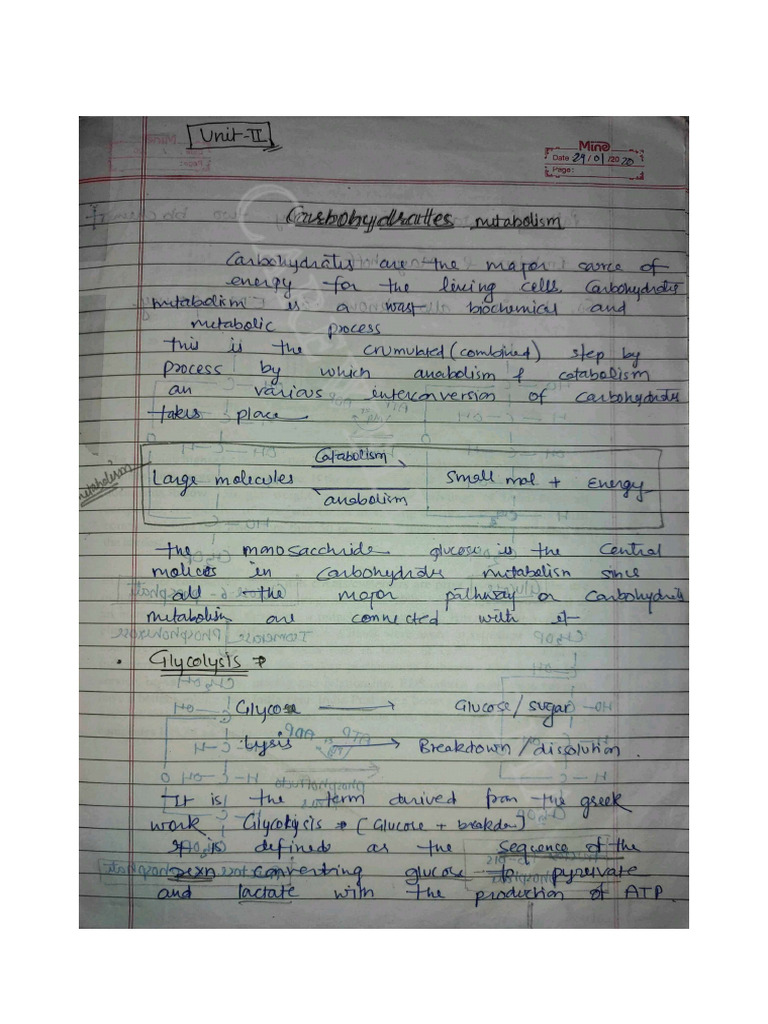 Unit-II
Mino
Date 29/01/2020
Page:
Carbohydrates metabolism
Carbohydrates are the major sarce of
energy for the living cells Carbohydrates
metabolism is a wast biochemical and
metabolic process
this is the crumulated (combined) step by
process by which anabolism & catabolism
an various interconversion of carbohydrates
takes place
metabolism
Catabolism
Large molecules Small mol + Energy
anabolism
the monosacchride glucose is the Central
in carbohydrates metabolism since
all the major pathway or carbohydrate
metabolism are connected with it
• Glycolysis ⇒
Glycose → Glucose/sugar
Lysis → Breakdown/dissolution.
It is the term derived from the greek
work Glycolysis ⇒ (Glucose + breakdan)
It is defined as the sequence of the
rexn converting glucose to pyruvate
and lactate with the production of ATP.